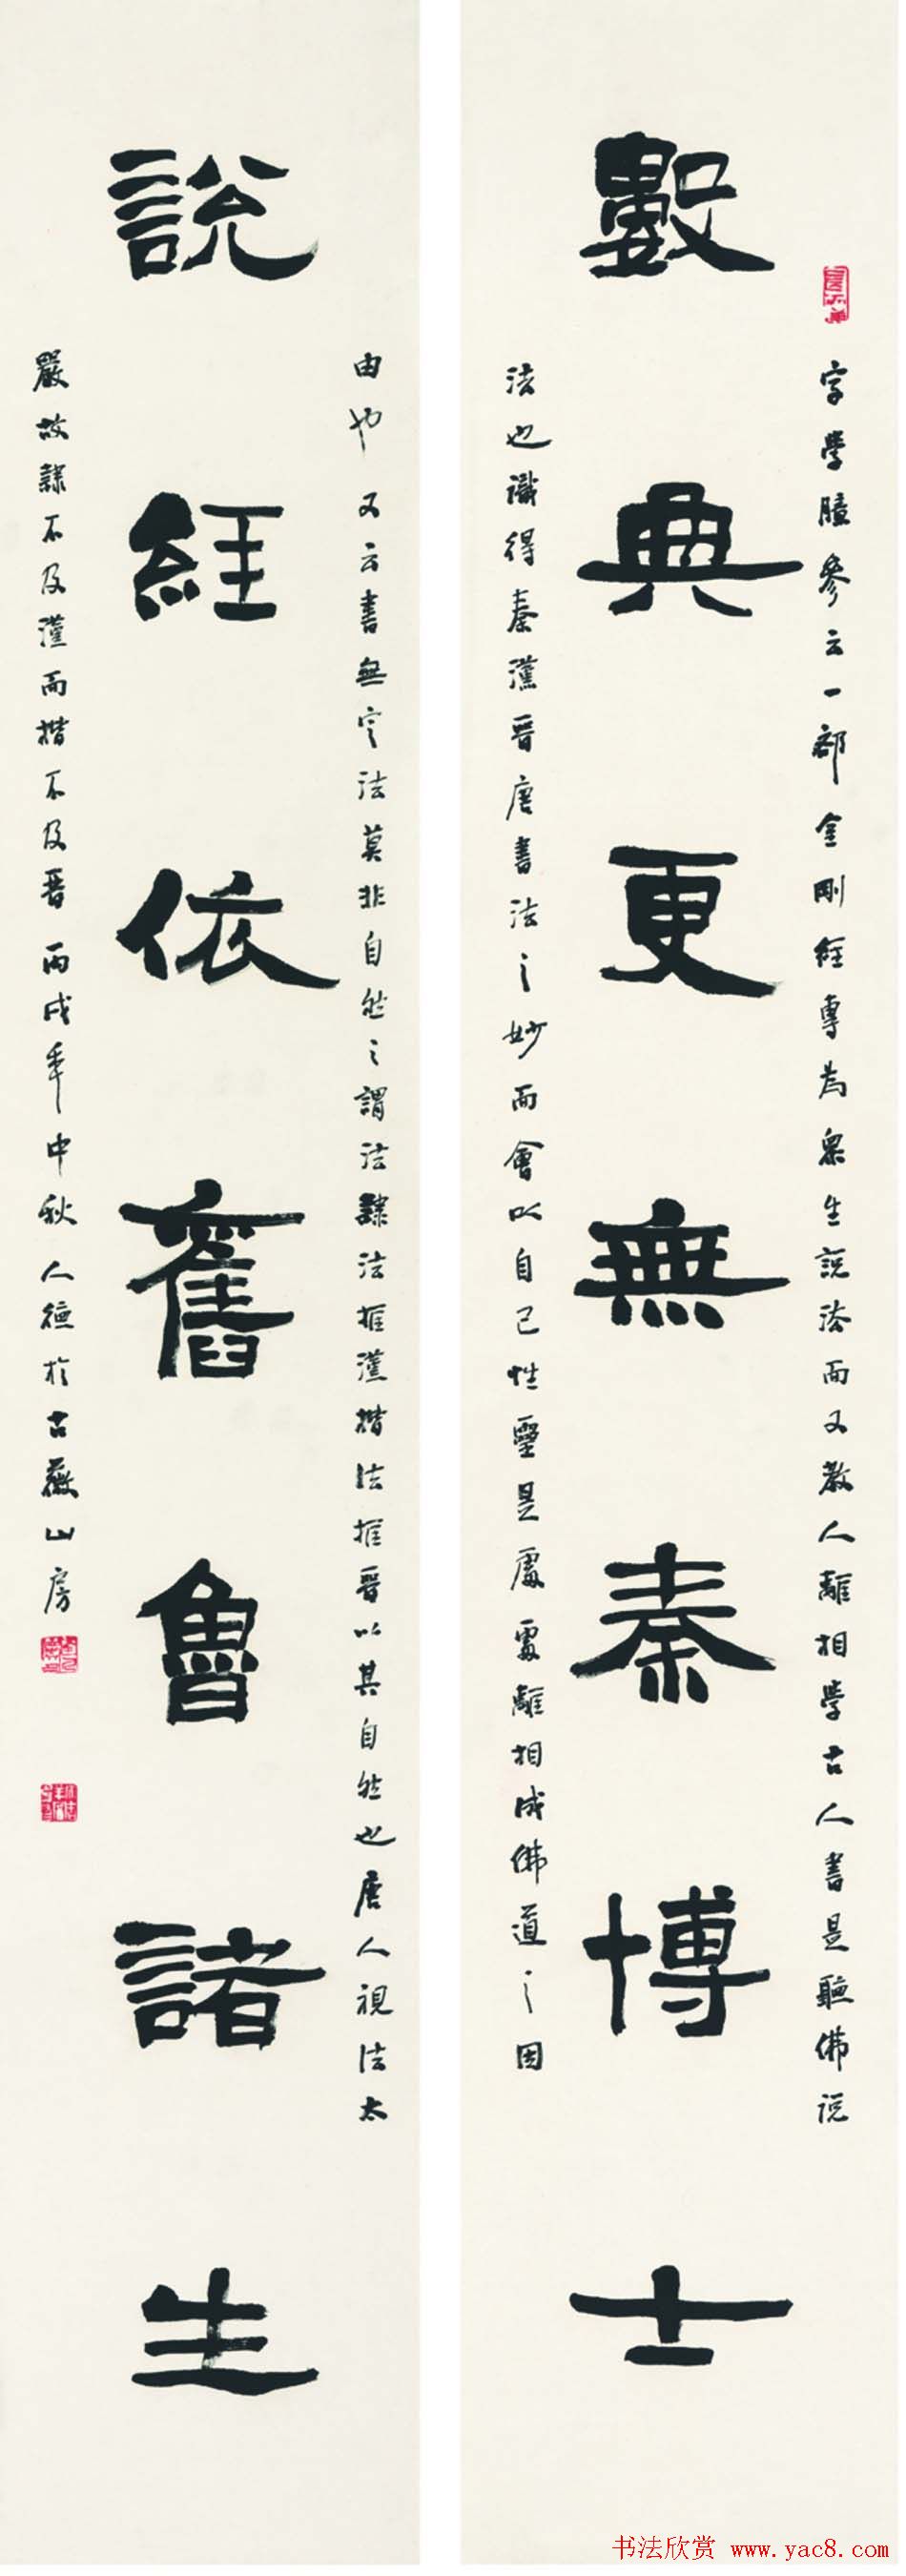 數典更無秦博士
字學臆參云一部金剛經專為眾生說法而又教人離相學古人書是聽佛說
法也識得秦漢晉唐書法之妙而會以自己性靈是處處離相成佛道之因
說經依舊魯諸生
由也又云書無定法莫非自然之謂法隸法推漢楷法推晉以其自然也唐人視法太
嚴故隸不及漢而楷不及晉丙戌年中秋人德於古薇山房
书法欣赏 www.yac8.com